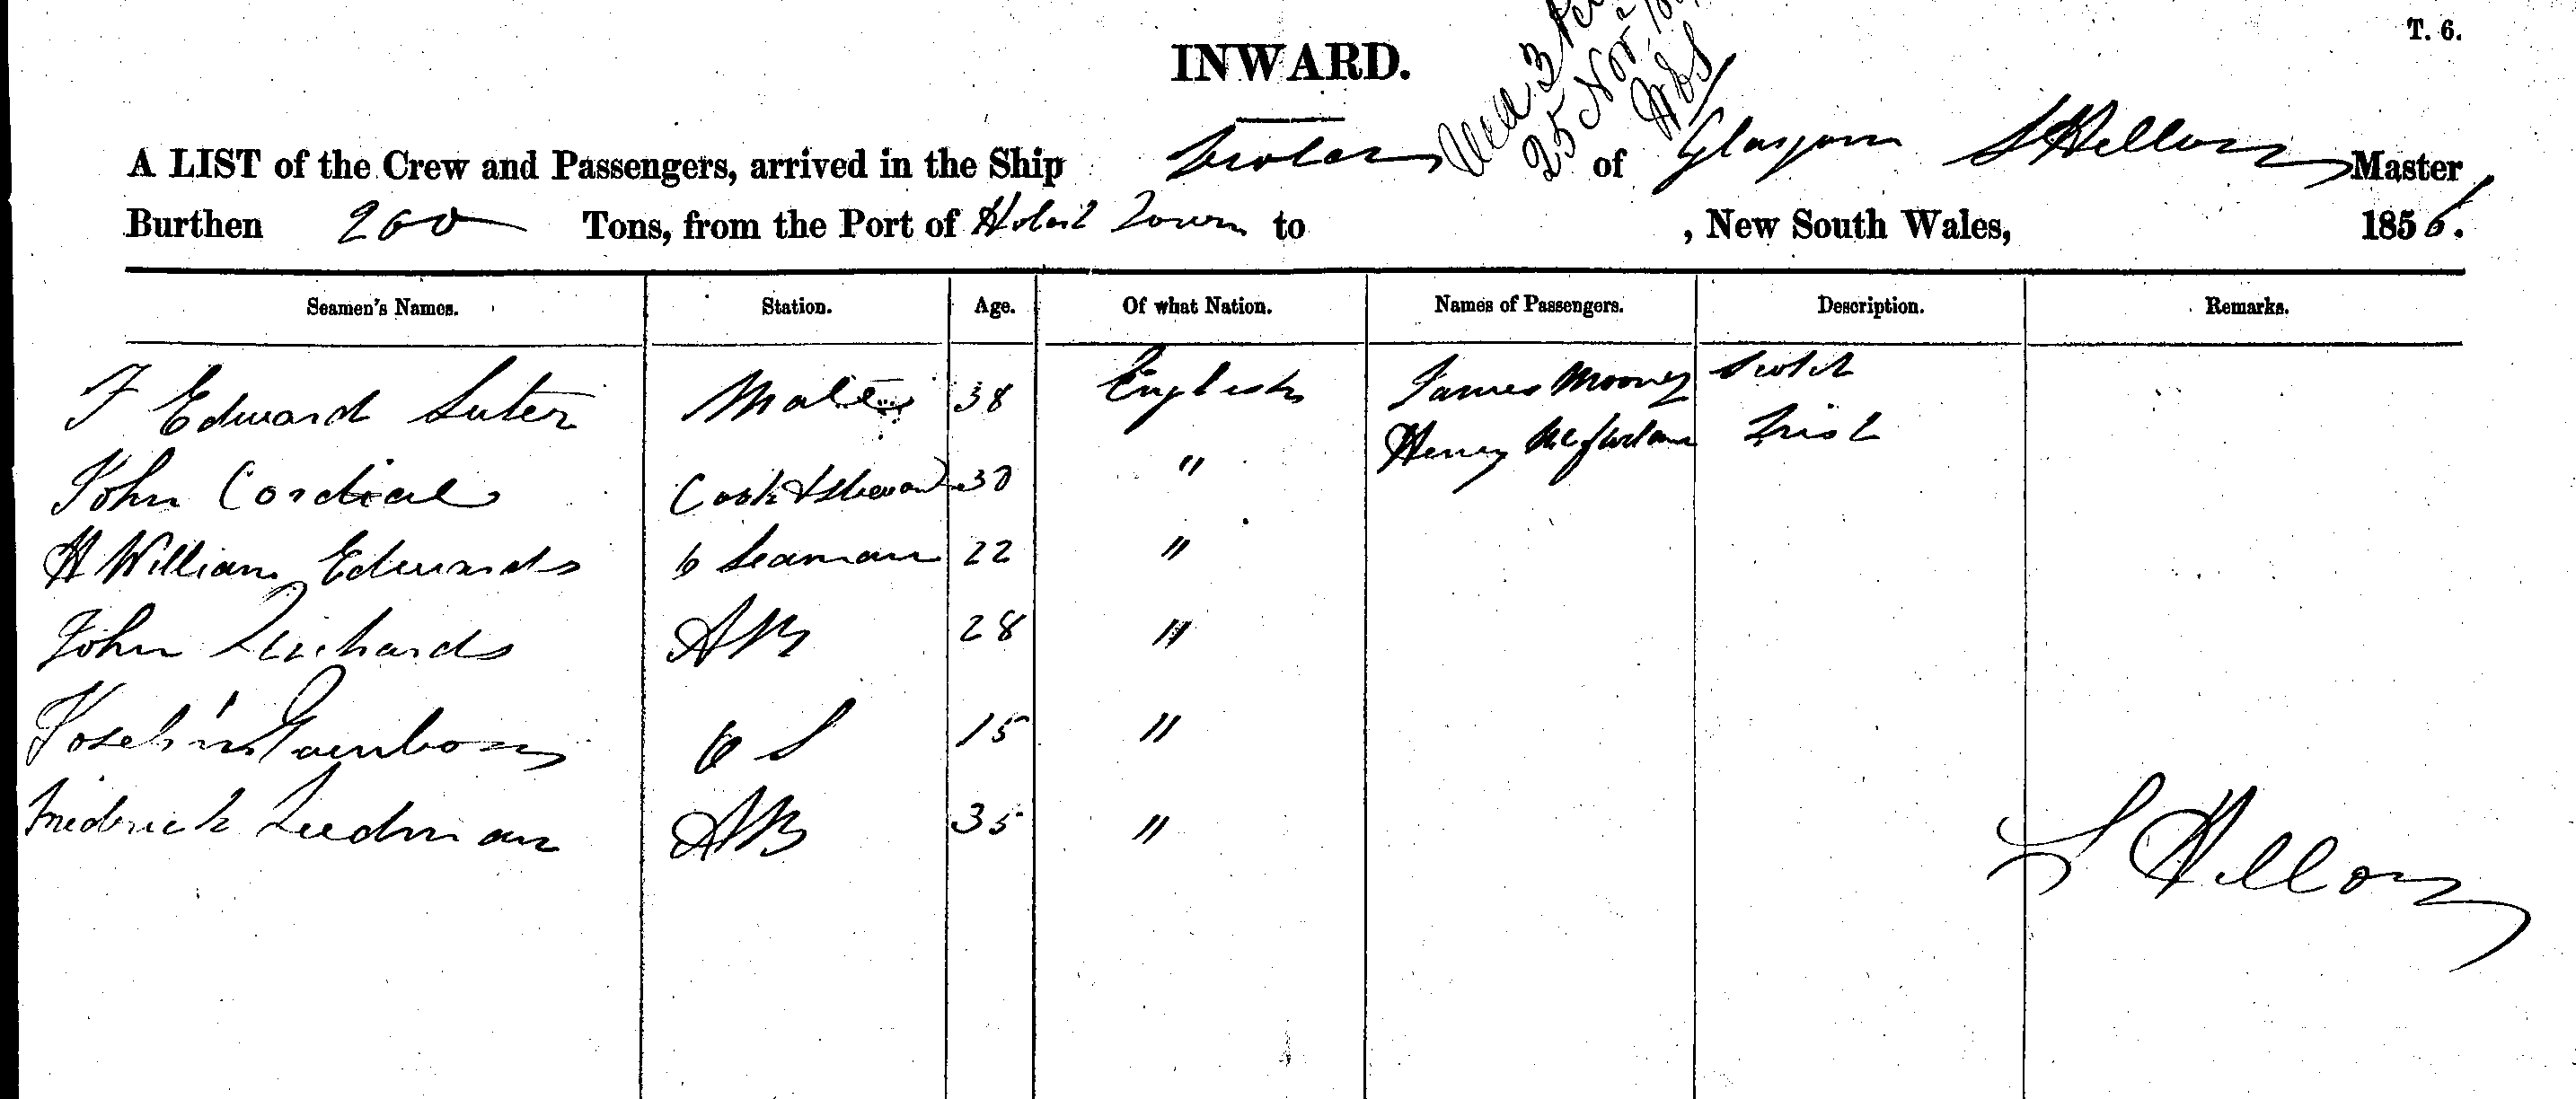 T. 6.
INWARD.
25 Nov
A LIST of the Crew and Passengers, arrived in the Ship of Glasgow Master
Burthen 200 Tons, from the Port of Hobart Town to , New South Wales, 1856.
Seamen's Names. Station. Age. Of what Nation. Names of Passengers. Description. Remarks.
F Edward Suter Mate 38 English James Mooney Scotch
Henry McFarlane Irish
John Cordial Cook & Steward 30 "
H William Edwards o Seaman 22 "
John Richards AB 28 "
O S 15 "
Frederick AB 35 "